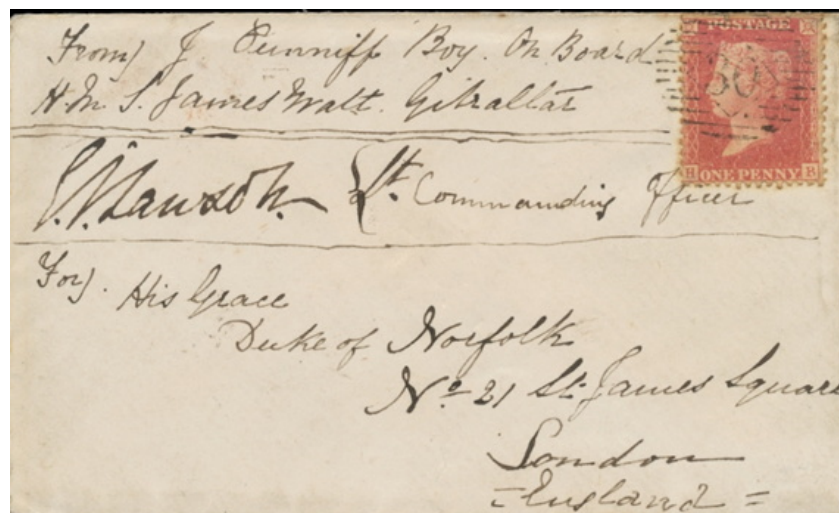 From J Cunniff Boy. On Board
H.M.S. James Watt. Gibraltar
POSTAGE
ONE PENNY
H B
Lawson. Lt. Commanding Officer
For. His Grace
Duke of Norfolk
No 21 St. James Square
London
= England =